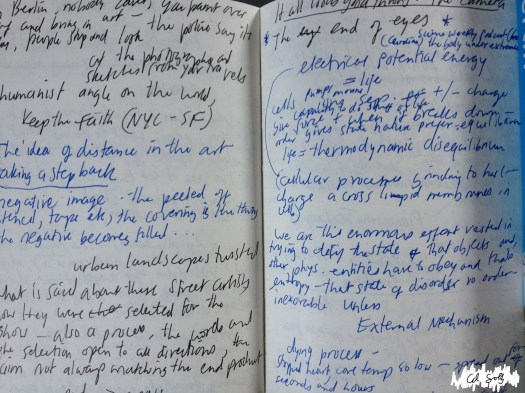 Berlin, nobody cares, you paint over
it and bring in art — the
people stop and look the police say its
of the photographs and
sketches from your travels
humanist angle on the world,
keep the faith (NYC – SF)
the idea of distance in the art
taking a step back
negative image – the peeled off
stencil, tape etc, the covering is the thing
the negative becomes filled ...
urban landscapes twisted
what is said about these street artists
how they were selected for the
show – also a process, the words and
the selection open to all directions, the
aim not always matching the end product
It all looks good through the camera
* The end of eyes *
the body under extremes
electrical potential energy
= life
cells pump
capability to do +/- charge
give force + when it breaks down –
order gives state nature prefer – equilibrium
life = thermodynamic disequilibrium
(cellular processes grinding to halt –
charge across lipid membranes in
cells
we are this enormous effort vested in
trying to defy the state that objects and
other phys. entities have to obey and that is
entropy – that state of disorder to order –
inexorable unless
External Mechanism
dying process –
stopped heart core temp so low – spread out for
seconds and hours